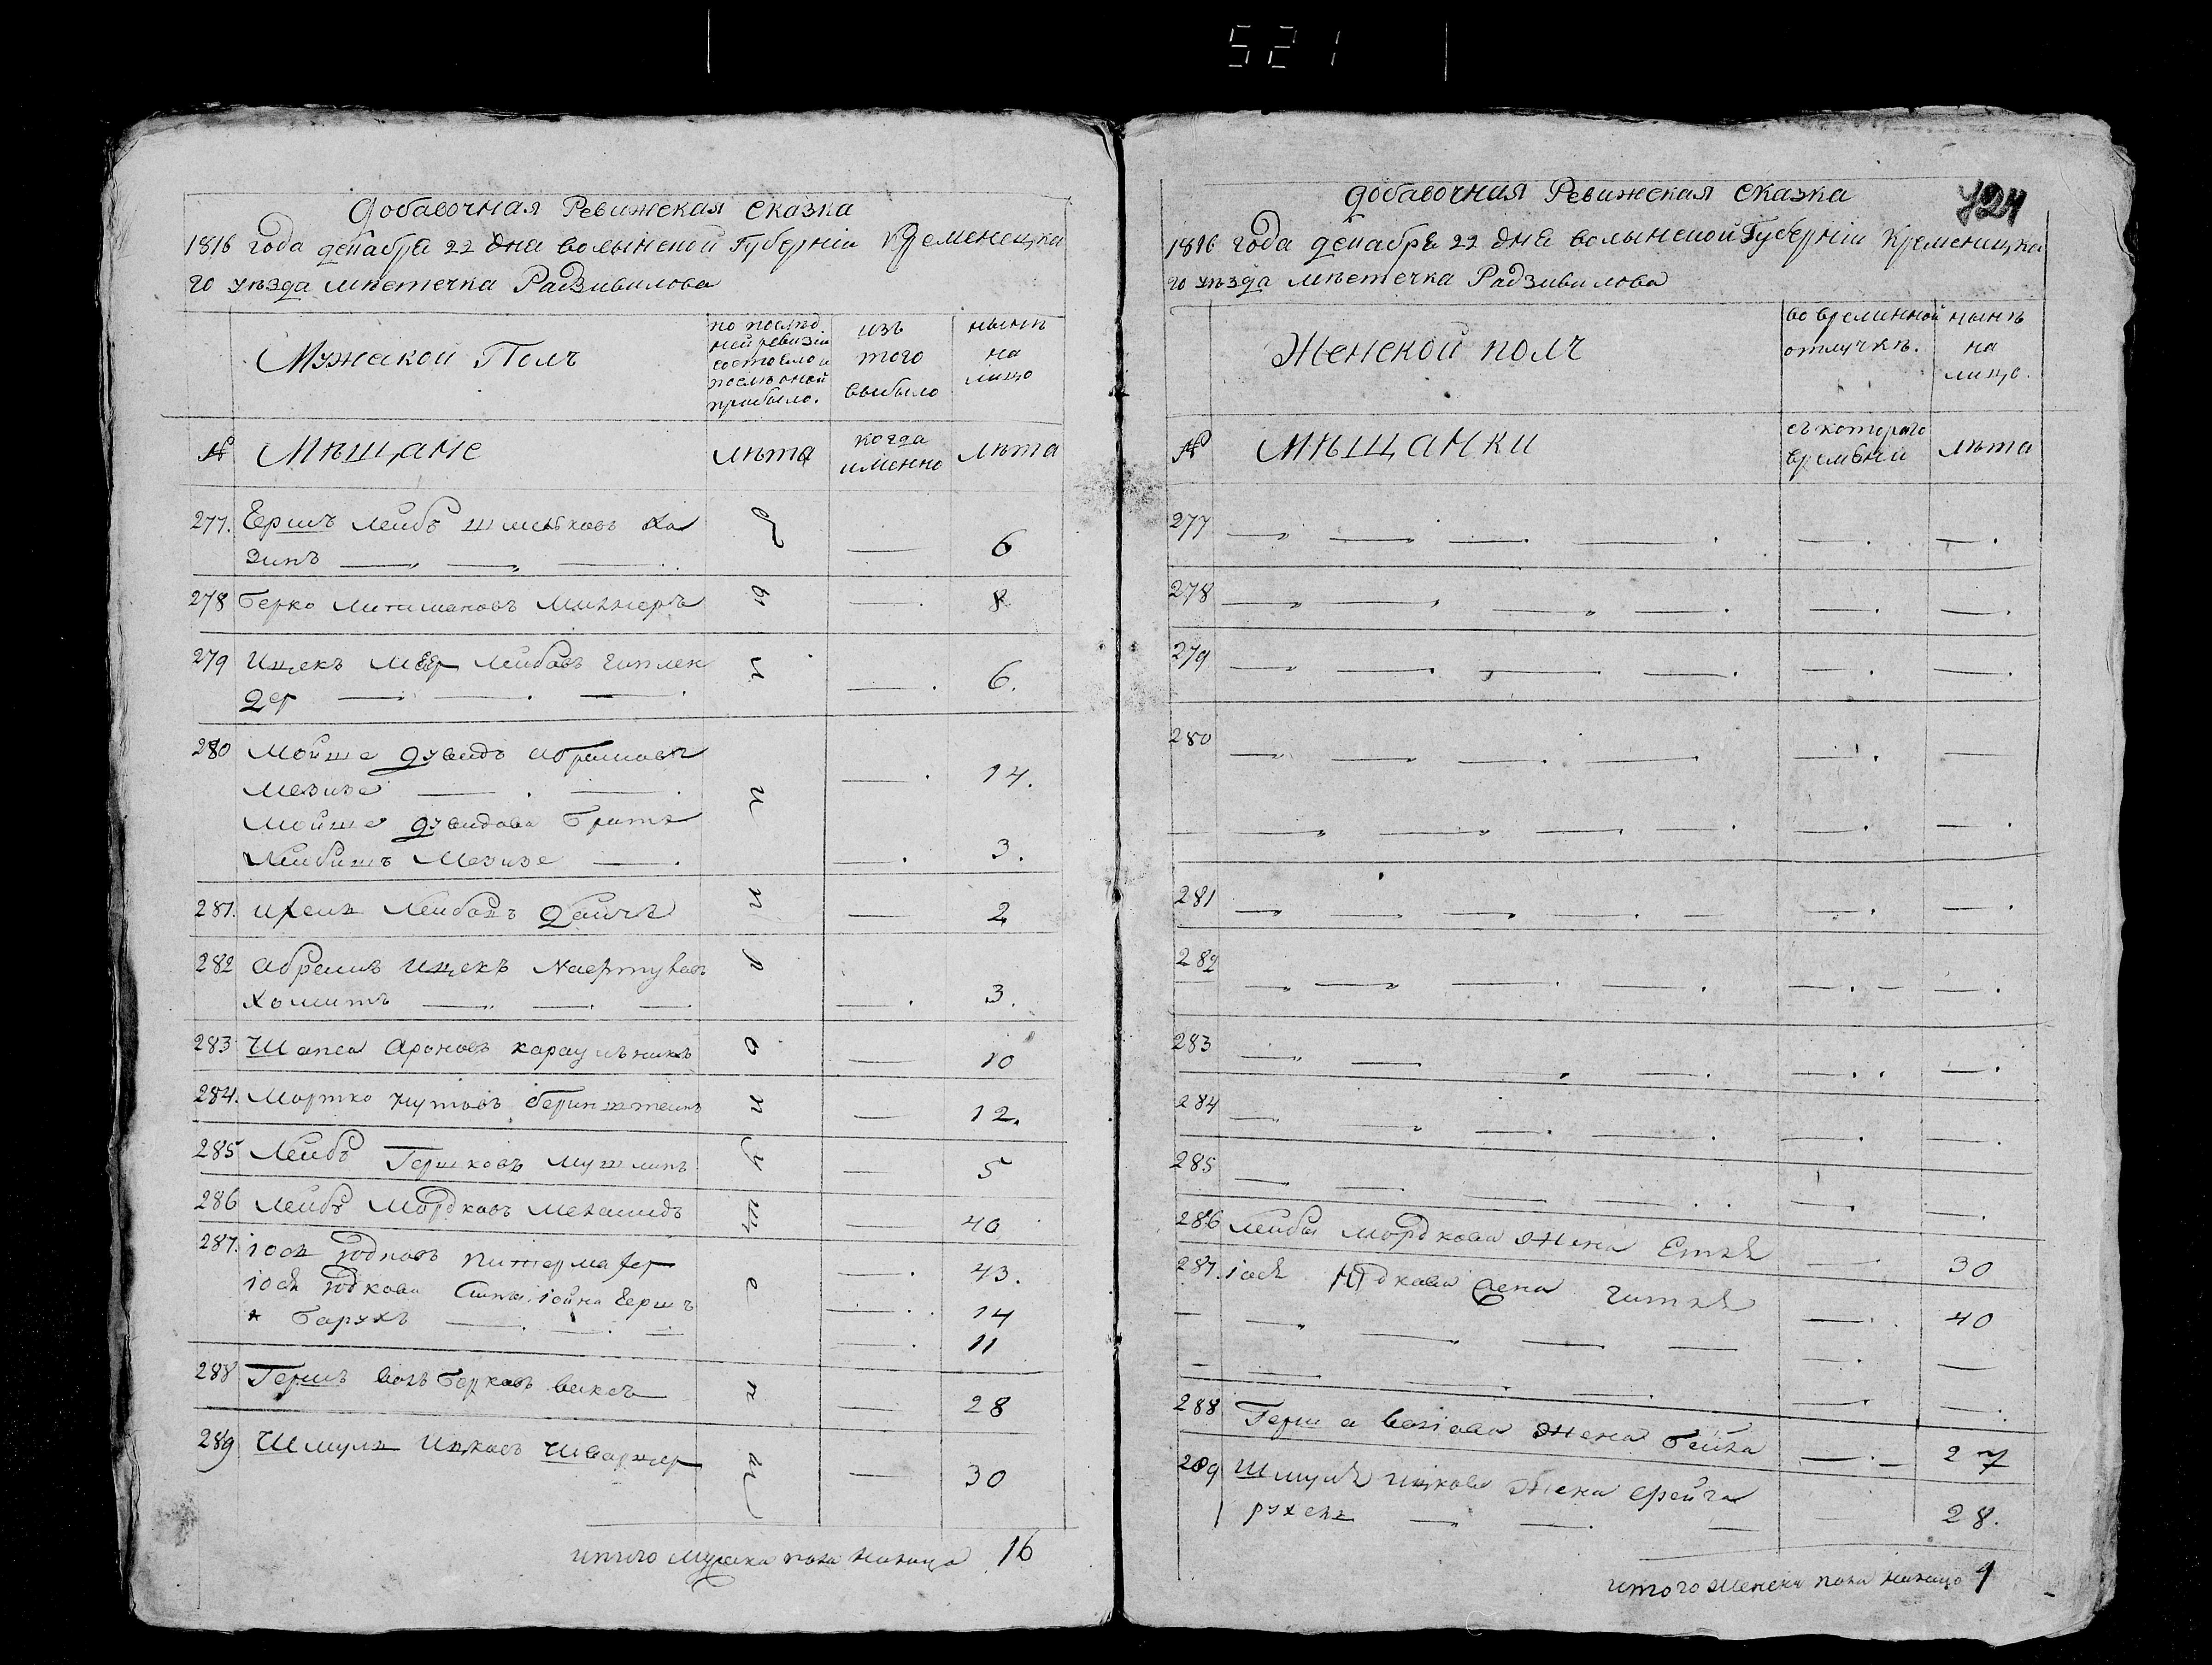 521
Добавочная Ревижская сказка
1816 года декабря 22 дня волынской Губернии Кременецка
го уезда местечка Радзивилова
Мужской Полъ
по послед
ней ревизіи
состояло и
после оной
прибыло.
изъ
того
выбыло
нынѣ
на
лицо
№ Мѣщане
лѣта
когда
именно
лѣта
277. Гершъ Лейбъ Шмельковъ Ха
зинъ — — — — 6
278 Берко Литмановъ Милнеръ — 8
279 Ицекъ Меер Лейбовъ Гитлен
дер — — — — 6.
280 Мойше Дувидъ Абрамовъ
Мезизе — — — 14.
Мойше Дувидова братъ
Лейбишъ Мезизе — — 3.
281. Ихелъ Лейбовъ Дайчъ — 2
282 Абрамъ Ицекъ
— — — — 3.
283 Шапса Ароновъ караульникъ — 10
284. Мортко Нутовъ Беринштеинъ — 12.
285 Лейбъ Гершковъ Мушлинъ — 5
286 Лейбъ Мордковъ Меламидъ — 40
287. Іось Юдковъ — 43.
Іося Юдкова Сыны. Іойна Герш ъ — 14
* Барухъ — — — — 11
288 Гершъ Волъ Берковъ Вексъ — 28
289 Шмуль Ицковъ Шварцер — 30
были пропущены
итого мужска пола налицо 16
Добавочная Ревижская сказка
724
1816 года декабря 22 дня волынской Губернии Кременецка
го уезда местечка Радзивилова
Женской полъ
во временной
отлучкѣ.
нынѣ
на
лицо.
№ Мѣщанки
съ котораго
времени
лѣта
277 — — — — — —
278 — — — — — —
279 — — — — — —
280 — — — — — —
— — — — — — —
281 — — — — — —
282 — — — — — —
283 — — — — — —
284 — — — — — —
285 — — — — — —
286 Лейбы Мордкова Жена Етля — 30
287. Іося Юдкова Жена Гитля — 40
— — — — — — —
— — — — — —
288 Герш а Волова Жена Бейла — 27
289 Шмуля Ицкова Жена Фейга
рухель — — — — 28.
итого женска пола налицо 4